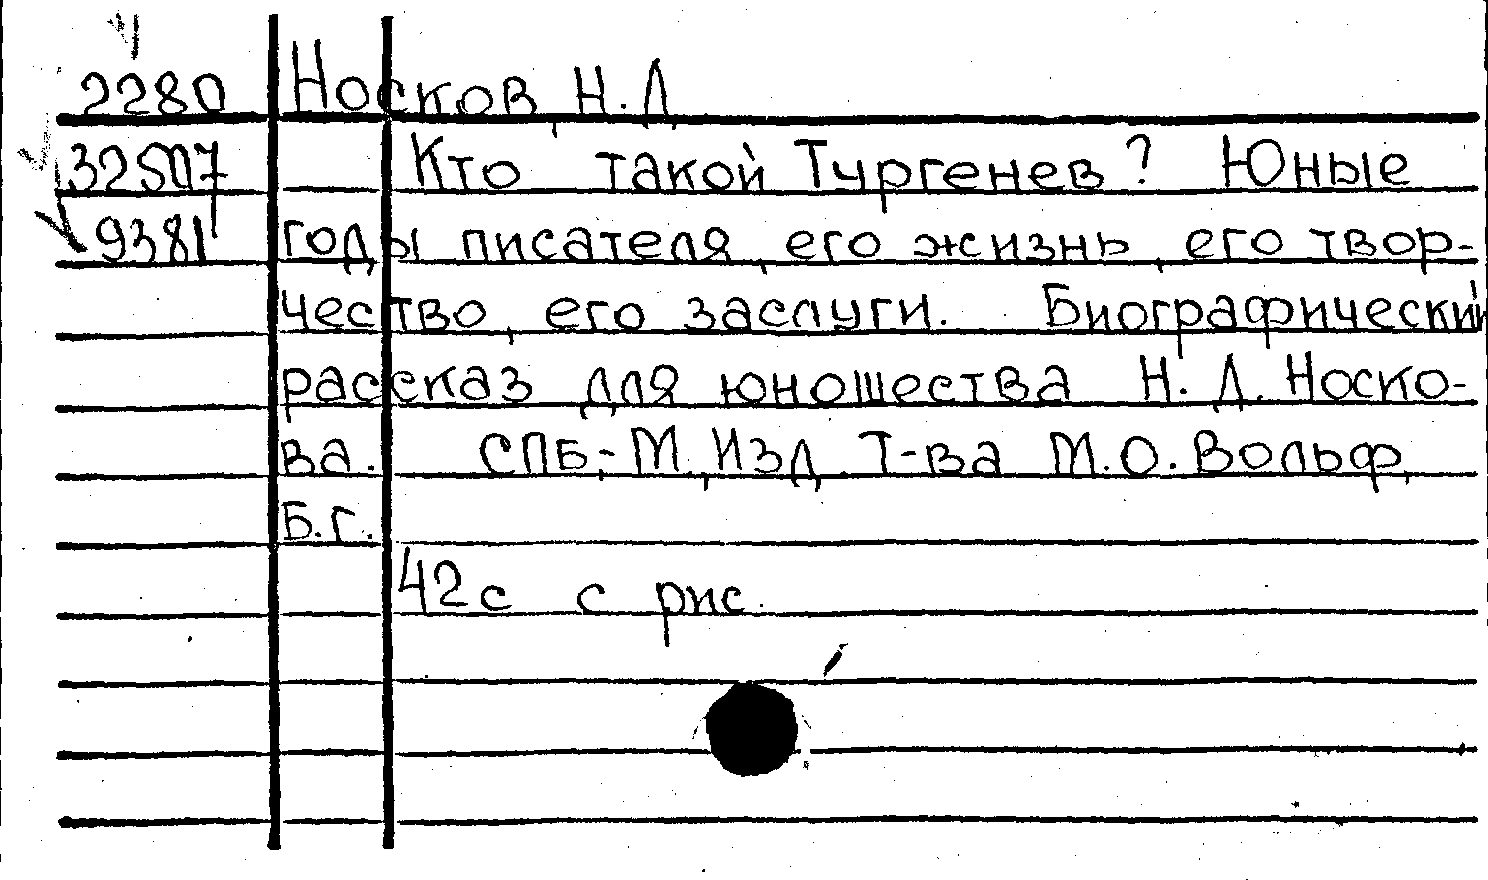 2280 Носков, Н. Д
32507 Кто такой Тургенев? Юные
9381 годы писателя, его жизнь, его твор-
чество, его заслуги. Биографический
рассказ для юношества Н. Д. Носко-
ва. СПБ,-М, Изд. Т-ва М.О.Вольф,
Б.г.
42с с рис.